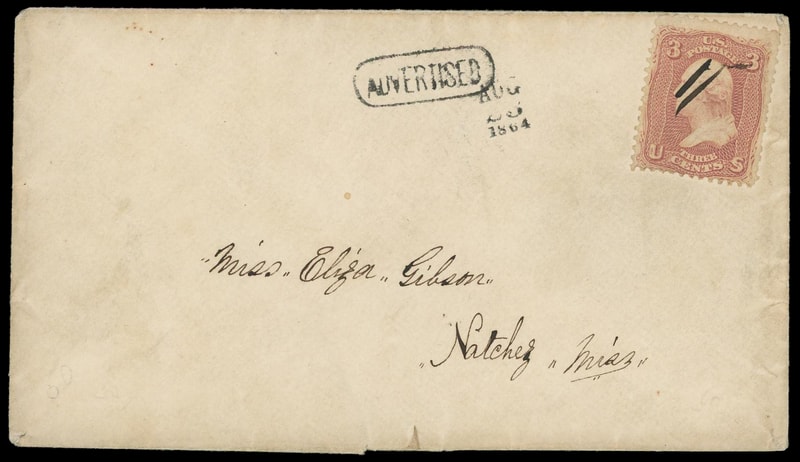 ADVERTISED
AUG
23
1864
3 U.S. 3
POSTAGE
THREE
U CENTS S
"Miss" Eliza "Gibson"
"Natchez "Miss"